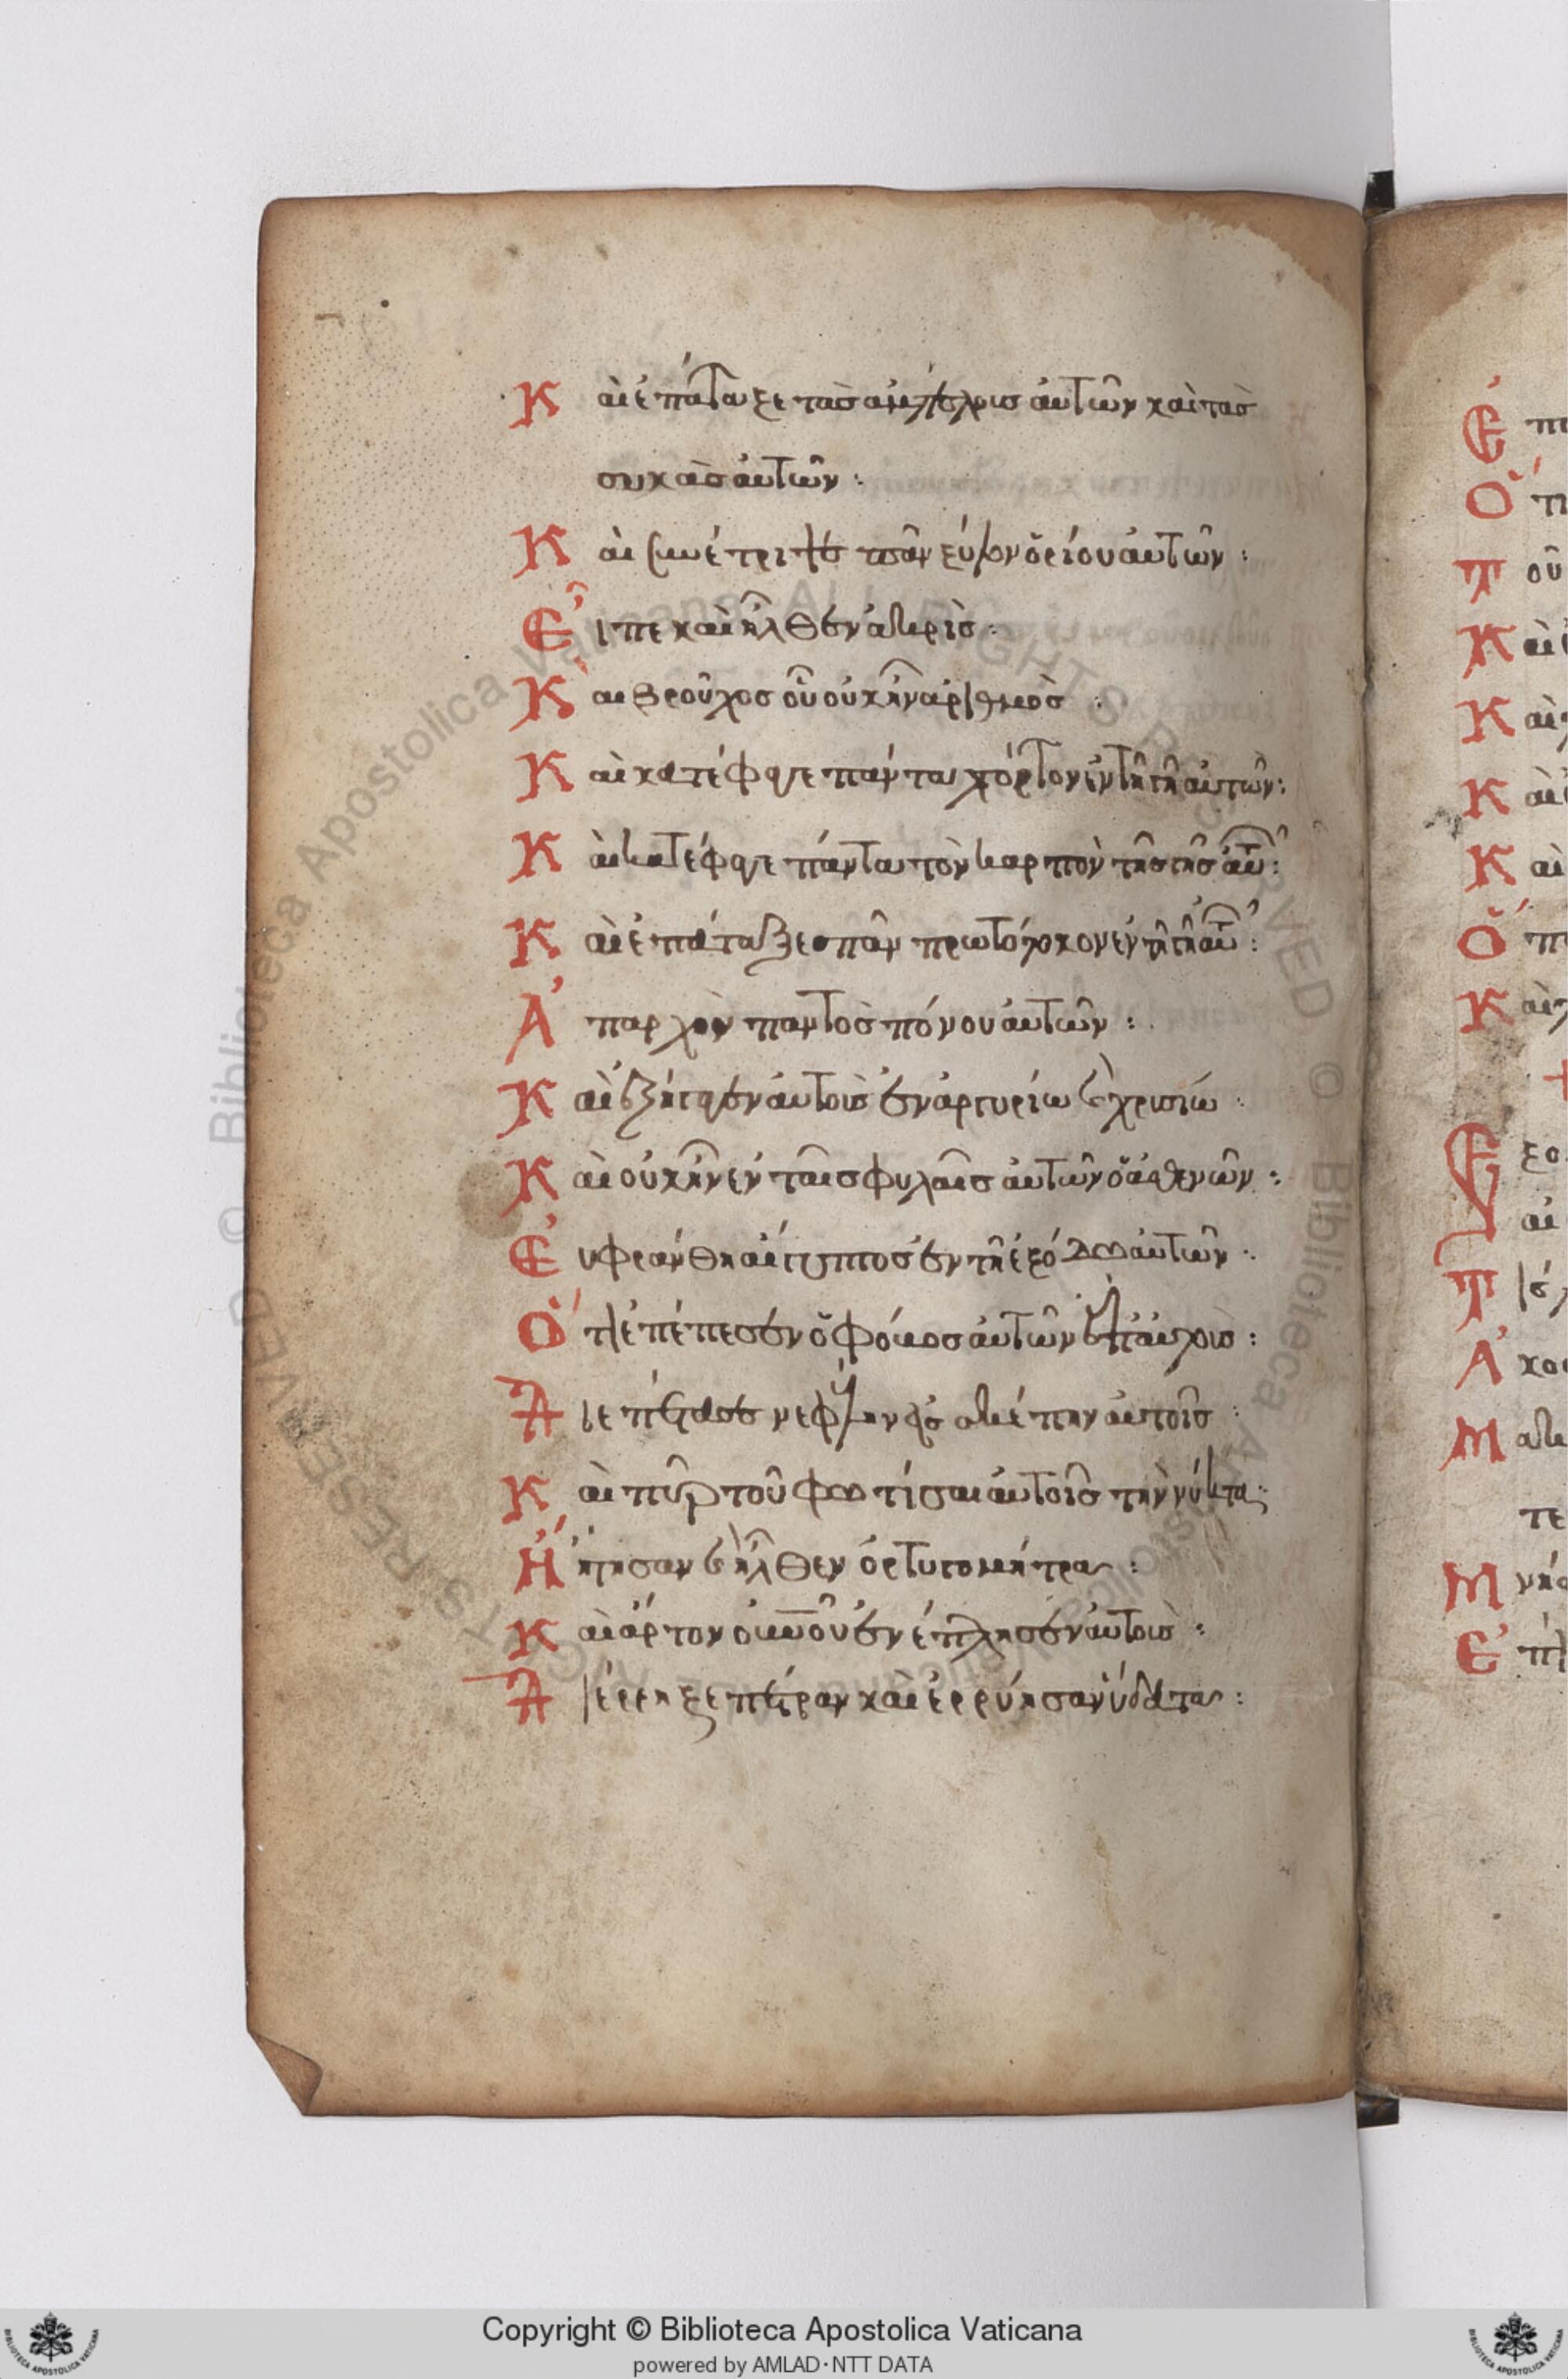 Καὶ ἐπάταξε τὰς ἀμπέλοις αὐτῶν καὶ τὰς
συκὰς αὐτῶν :
Καὶ συνέτριψε πᾶν ξύλον ὁρίου αὐτῶν :
Εἶπε καὶ ἦλθεν ἀκρὶς :
Καὶ βροῦχος οὗ οὐκ ἦν ἀριθμὸς :
Καὶ κατέφαγε πάντα χόρτον ἐν τῆ γῆ αὐτῶν :
Καὶ κατέφαγε πάντα τὸν καρπὸν τῆς γῆς αὐτ :
Καὶ ἐπάταξε πᾶν πρωτότοκον ἐν τῆ γῆ αὐτ :
Ἀπαρχὴν παντὸς πόνου αὐτῶν :
Καὶ ἐξήγαγεν αὐτοὺς ἐν ἀργυρίω καὶ χρυσίω :
Καὶ οὐκ ἦν ἐν ταῖς φυλαῖς αὐτῶν ὁ ἀσθενῶν :
Εὐφράνθη αἴγυπτος ἐν τῆ ἐξόδω αὐτῶν :
Ὅτι ἐπέπεσεν ὁ φόβος αὐτῶν ἐπ αὐτοὺς :
Διεπέτασε νεφέλην εἰς σκέπην αὐτοῖς :
Καὶ πῦρ τοῦ φωτίσαι αὐτοῖς τὴν νύκτα :
Ἤτησαν καὶ ἦλθεν ὀρτυγομήτρα :
Καὶ ἄρτον οὐνοῦ ἐνέπλησεν αὐτοὺς :
Διέρρηξε πέτραν καὶ ἐρρύησαν ὕδατα :
Copyright © Biblioteca Apostolica Vaticana
powered by AMLAD·NTT DATA